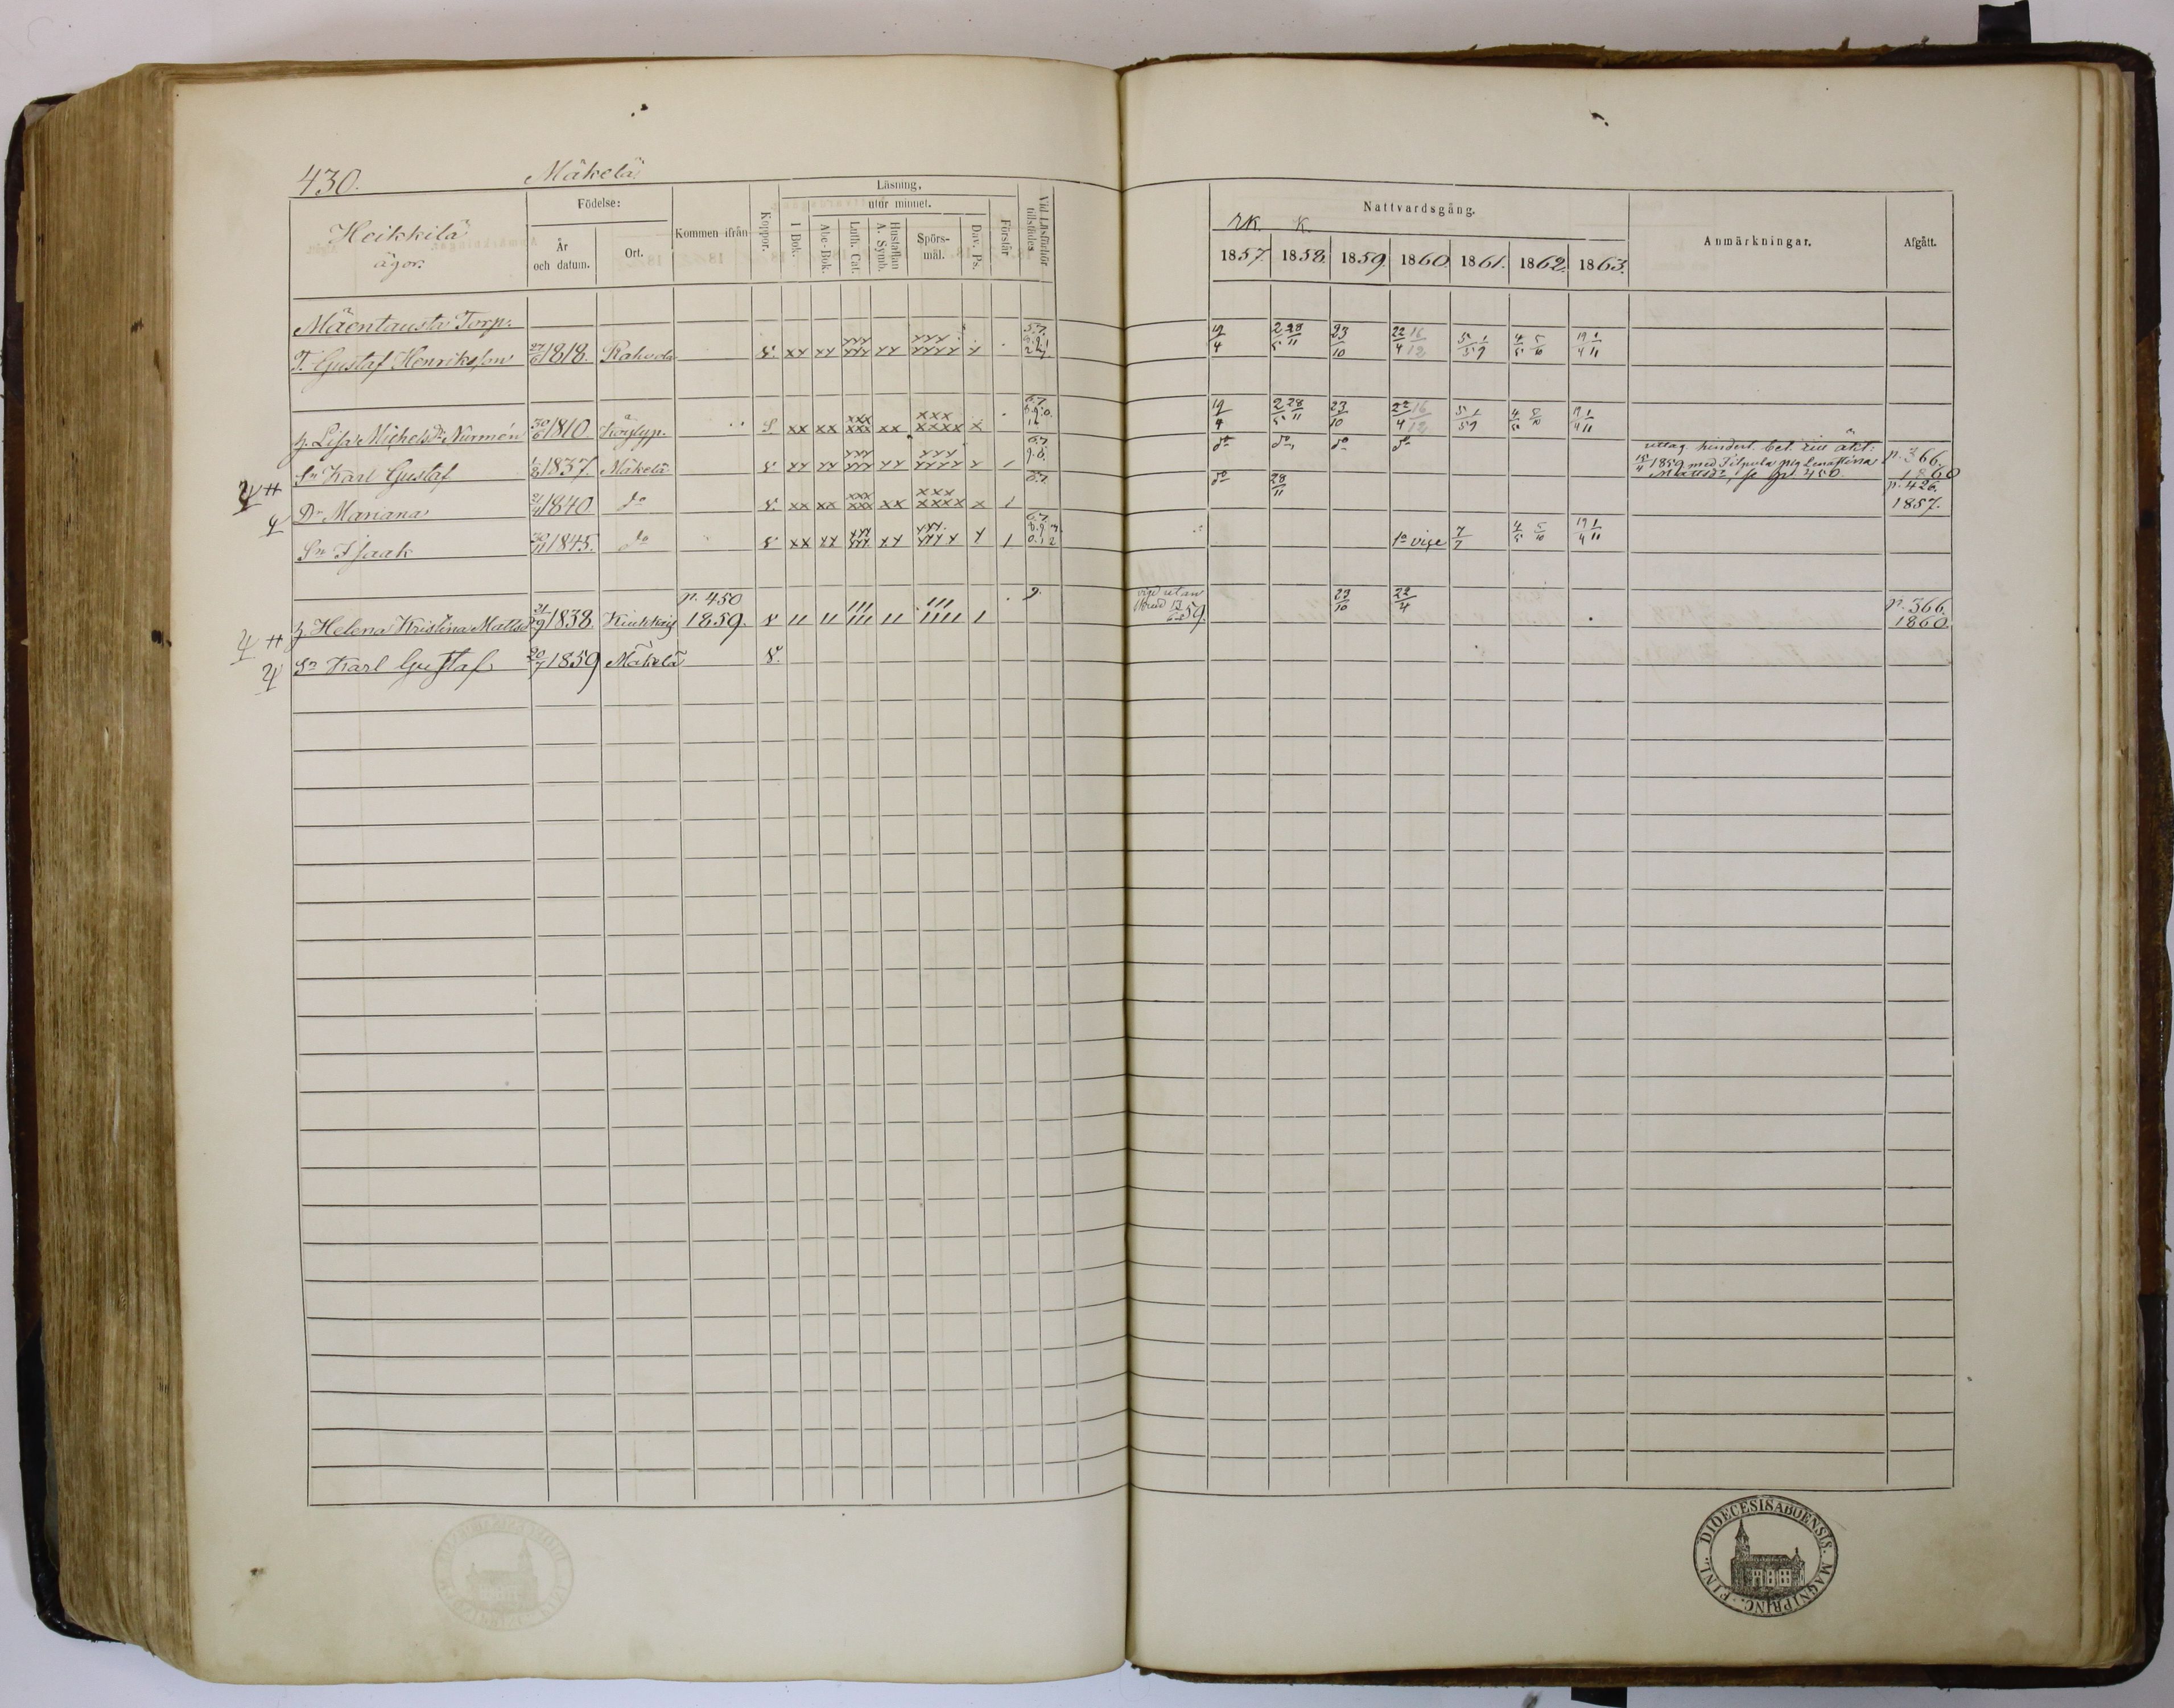 430. Mäkelä
Heikkilä
ägor.
Födelse:
År
och datum.
Ort.
Kommen ifrån
Koppor.
Läsning.
I Bok.
utur minnet.
Abc-Bok.
Luth. Cat.
Hustaflan
A. Symb.
Spörs-
mål.
Dav. Ps.
Förstår
Vid Läsförhör
tillstädes
Nattvardsgång.
rk. k.
1857. 1858. 1859. 1860. 1861. 1862. 1863.
Anmärkningar.
Afgått.
Mäentausta Torp:
T. Gustaf Henriksson 27/6 1818. S. xx xx xxx xxx xx xxx xxxx x 19/4 2/5 28/11 23/10 22/4 16/12 4/5 5/10 19/4 1/11
h. Lisa Michelsdr Nurmén 30/6 1810 S xx xx xxx xxx xx xxx xxxx x 19/4 2/5 28/11 23/10 22/4 16/12 4/5 5/10 19/4 1/11
Sn Karl Gustaf 1/8 1837. Mäkelä S. xx xx xxx xxx xx xxx xxxx x 1 do do do do
15/4 1859 med p. 450. p. 366.
1860
Dr Mariana 21/4 1840 do S. xx xx xxx xxx xx xxx xxxx x 1 do 28/11 p. 426.
1857.
Sn Isaak 30/11 1845. do S xx xx xxx xxx xx xxx xxxx x 1 1a vice 7/7 4/5 5/10 19/4 1/11
p. 450
h. Helena Kristina Mattsdr 21/9 1838. 1859. S 11 11 111 111 11 111 1111 1 9. 59. 23/10 22/4 p. 366.
1860.
Sn Karl Gustaf 20/7 1859 Mäkelä S.
FINL. DIOECESIS ABOENSIS. MAGNI PRINC.